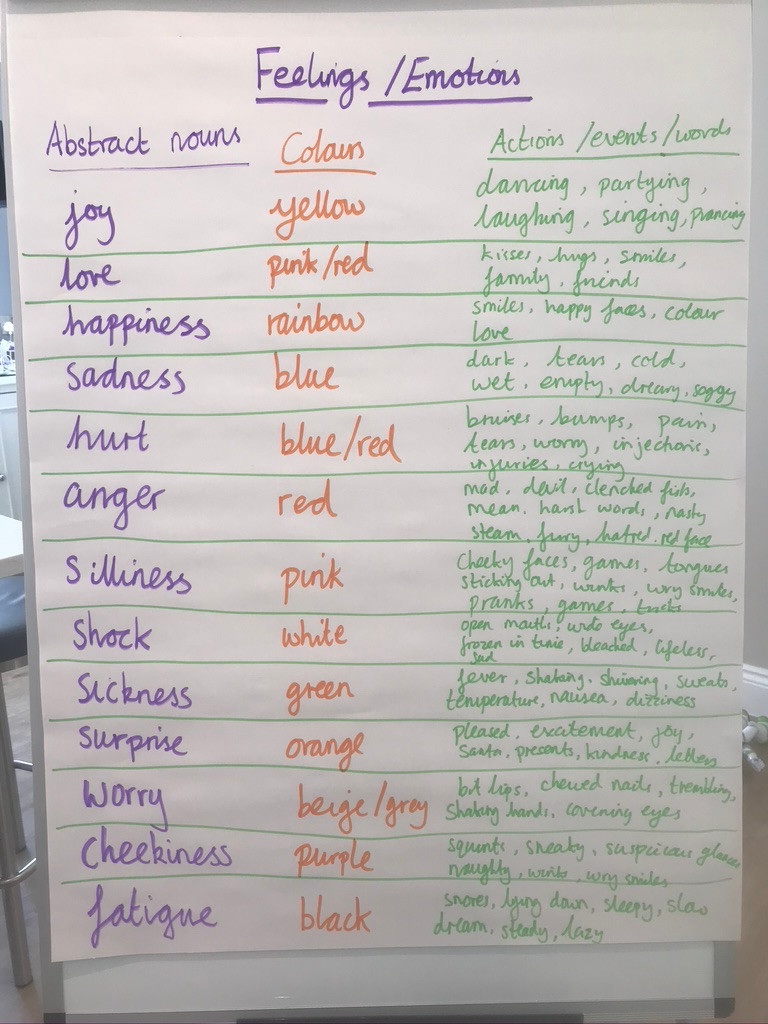 Feelings / Emotions
Abstract nouns Colours Actions / events / words
joy yellow dancing, partying,
laughing, singing, prancing
love pink/red kisses, hugs, smiles,
family, friends
happiness rainbow smiles, happy faces, colour
love
sadness blue dark, tears, cold,
wet, empty, dreary, soggy
hurt blue/red bruises, bumps, pain,
tears, worry, injections,
injuries, crying
anger red mad, devil, clenched fists,
mean, harsh words, nasty
steam, fury, hatred, red face
Silliness pink cheeky faces, games, tongues
sticking out, winks, wry smiles,
pranks, games, tricks
Shock white open mouths, wide eyes,
frozen in time, bleached, lifeless,
sad
Sickness green fever, shaking, shivering, sweats,
temperature, nausea, dizziness
surprise orange pleased, excitement, joy,
Santa, presents, kindness, letters
Worry beige/grey bit lips, chewed nails, trembling,
shaking hands, covering eyes
Cheekiness purple squints, sneaky, suspicious glances
naughty, winks, wry smiles
fatigue black snores, lying down, sleepy, slow
dream, steady, lazy